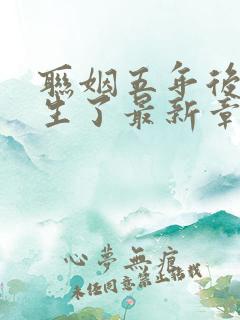 聯姻五年後
生了最新章
心夢無痕
未經同意禁止轉載